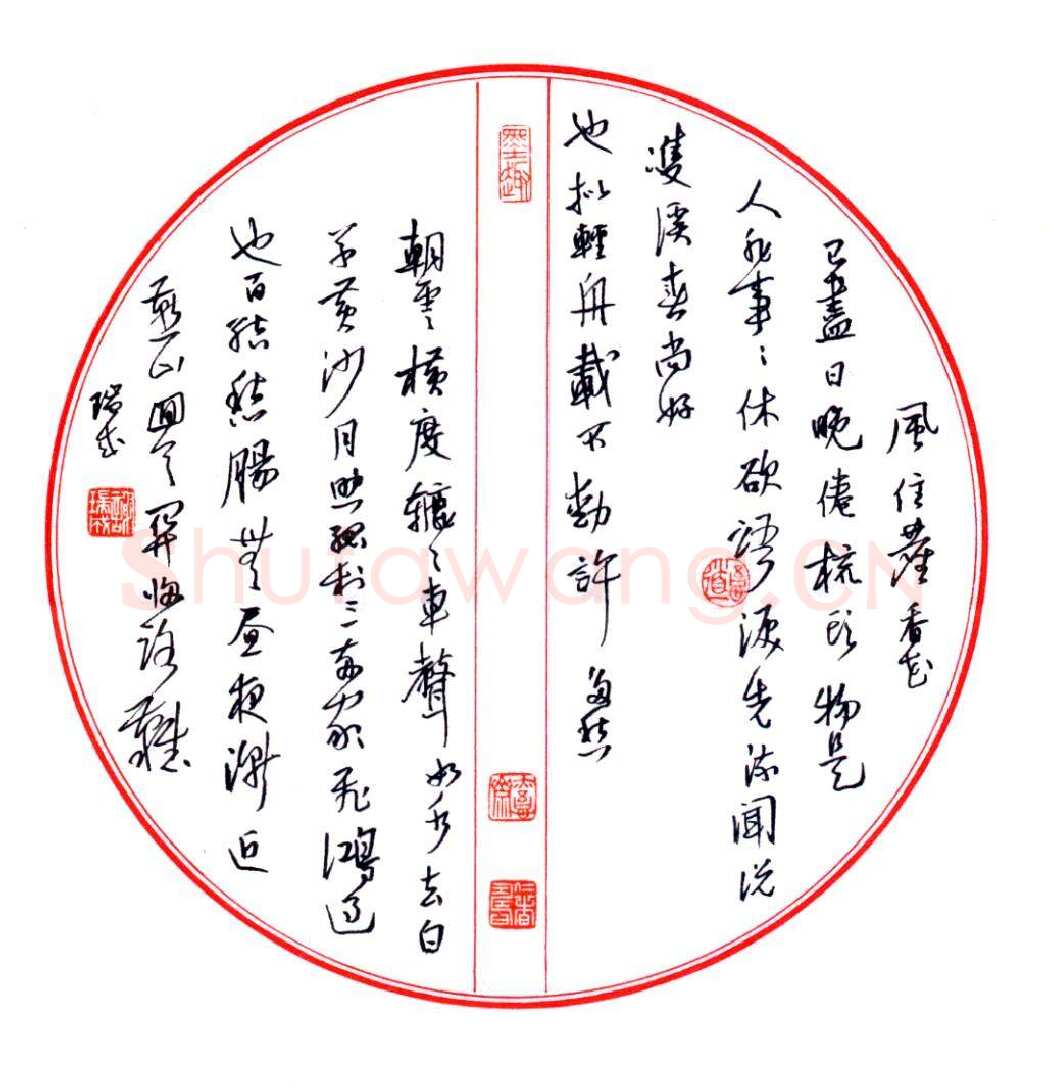 風住塵香花
已盡日晚倦梳頭物是
人非事〻休欲語淚先流聞說
雙溪春尚好
也擬輕舟載不動許多愁
墨趣
朝雲橫度轆〻車聲如水去白
草黃沙月照孤村三兩家飛鴻過
也百結愁腸無晝夜漸近
燕山回首鄉關歸路難
瑞成
Shufawang.CN